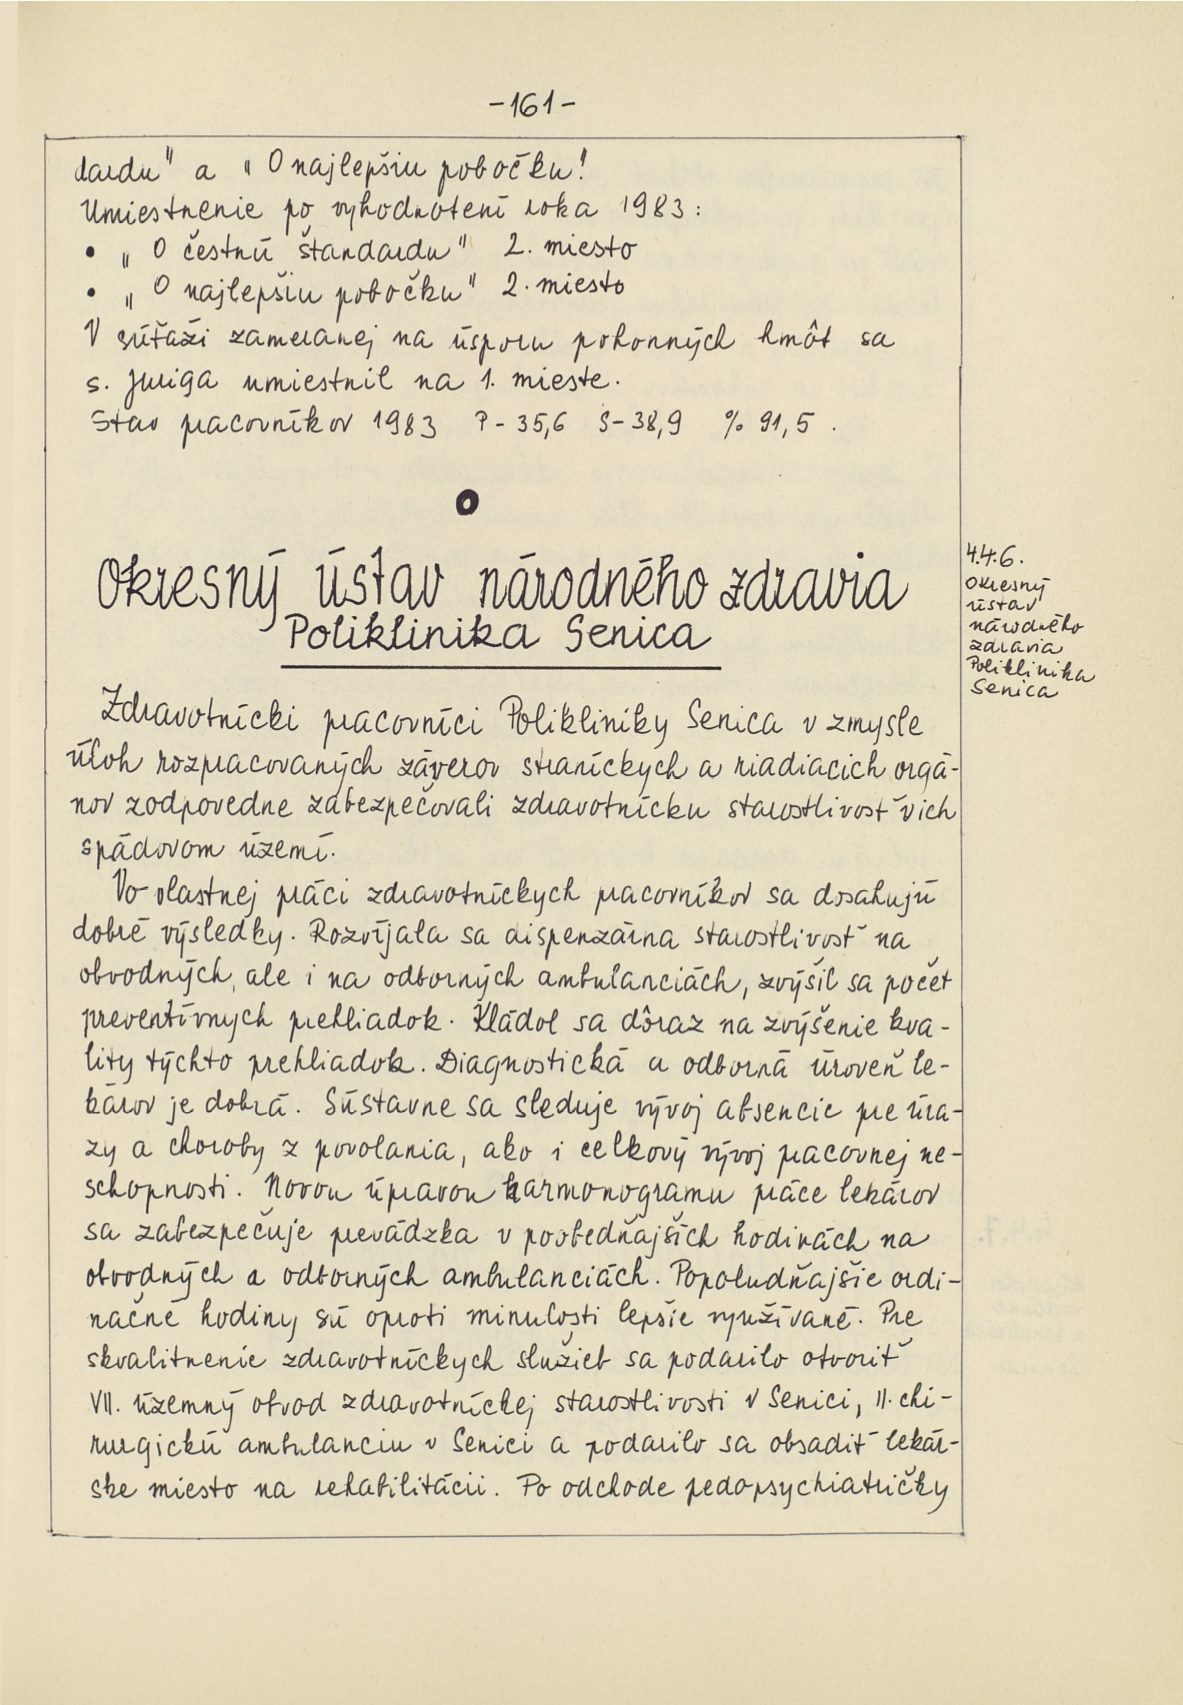 -161-
dardu" a „O najlepšiu pobočku!
Umiestnenie po vyhodnotení roka 1983:
• „O čestnú štandardu" 2. miesto
• „O najlepšiu pobočku" 2. miesto
V súťaži zameranej na úsporu pohonných hmôt sa
s. Juriga umiestnil na 1. mieste.
Stav pracovníkov 1983 P-35,6 S-38,9 % 91,5.
Okresný ústav národného zdravia
Poliklinika Senica
4.4.6.
Okresný
ústav
národného
zdravia
Poliklinika
Senica
Zdravotnícki pracovníci Polikliniky Senica v zmysle
úloh rozpracovaných záverov straníckych a riadiacich orgá-
nov zodpovedne zabezpečovali zdravotnícku starostlivosť v ich
spádovom území.
Vo vlastnej práci zdravotníckych pracovníkov sa dosahujú
dobré výsledky. Rozvíjala sa dispenzárna starostlivosť na
obvodných, ale i na odborných ambulanciách, zvýšil sa počet
preventívnych prehliadok. Kládol sa dôraz na zvýšenie kva-
lity týchto prehliadok. Diagnostická a odborná úroveň le-
károv je dobrá. Sústavne sa sleduje vývoj absencie pre úra-
zy a choroby z povolania, ako i celkový vývoj pracovnej ne-
schopnosti. Novou úpravou harmonogramu práce lekárov
sa zabezpečuje prevádzka v poobedňajších hodinách na
obvodných a odborných ambulanciách. Popoludňajšie ordi-
načné hodiny sú oproti minulosti lepšie využívané. Pre
skvalitnenie zdravotníckych služieb sa podarilo otvoriť
VII. územný obvod zdravotníckej starostlivosti v Senici, II. chi-
rurgickú ambulanciu v Senici a podarilo sa obsadiť lekár-
ske miesto na rehabilitácii. Po odchode pedopsychiatričky